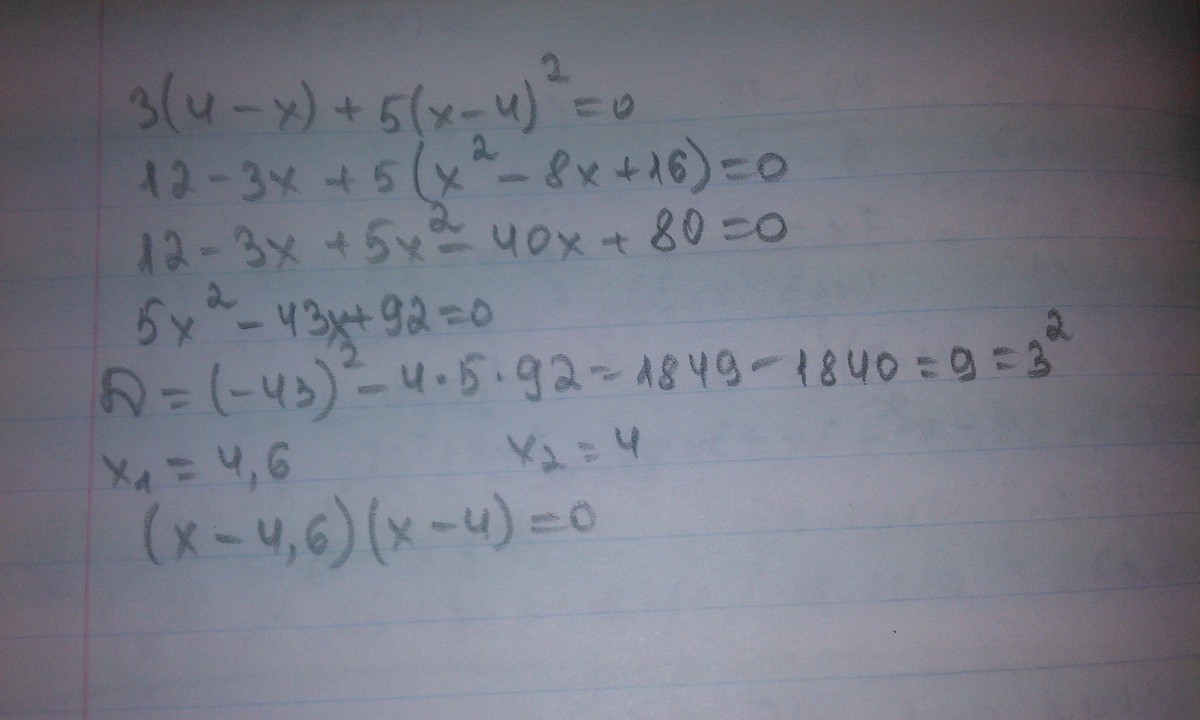 3(4 - x) + 5(x - 4)² = 0
12 - 3x + 5(x² - 8x + 16) = 0
12 - 3x + 5x² - 40x + 80 = 0
5x² - 43x + 92 = 0
D = (-43)² - 4 · 5 · 92 = 1849 - 1840 = 9 = 3²
x₁ = 4,6 x₂ = 4
(x - 4,6)(x - 4) = 0